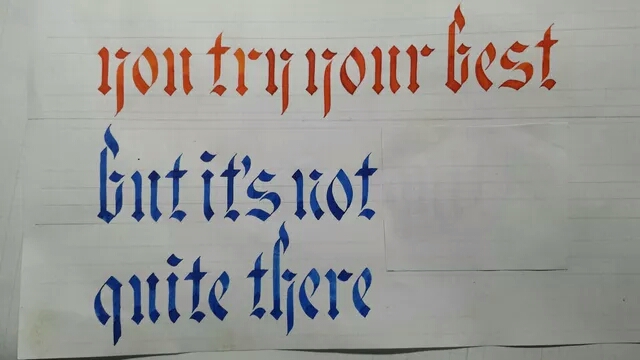 you try your best
but it's not
quite there